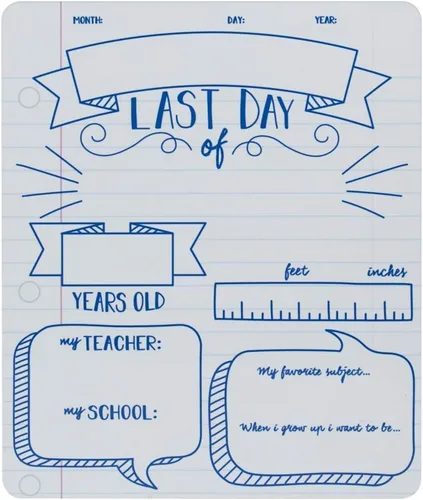 MONTH: DAY: YEAR:
LAST DAY
of
YEARS OLD
feet inches
my TEACHER:
my SCHOOL:
My favorite subject...
When i grow up i want to be...